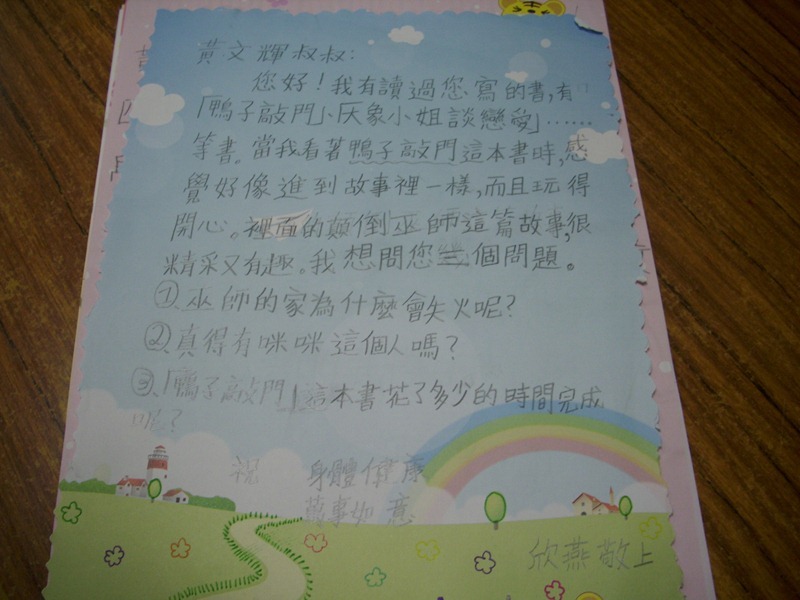 黃文輝叔叔：
您好！我有讀過您寫的書,有
「鴨子敲門」、「天象小姐談戀愛」……
等書。當我看著鴨子敲門這本書時,感
覺好像進到故事裡一樣,而且玩得
開心。裡面的顛倒巫師這篇故事,很
精采又有趣。我想問您三個問題。
①巫師的家為什麼會失火呢？
②真得有咪咪這個人嗎？
③「鴨子敲門」這本書花了多少的時間完成
呢？
祝 身體健康
萬事如意
欣燕敬上